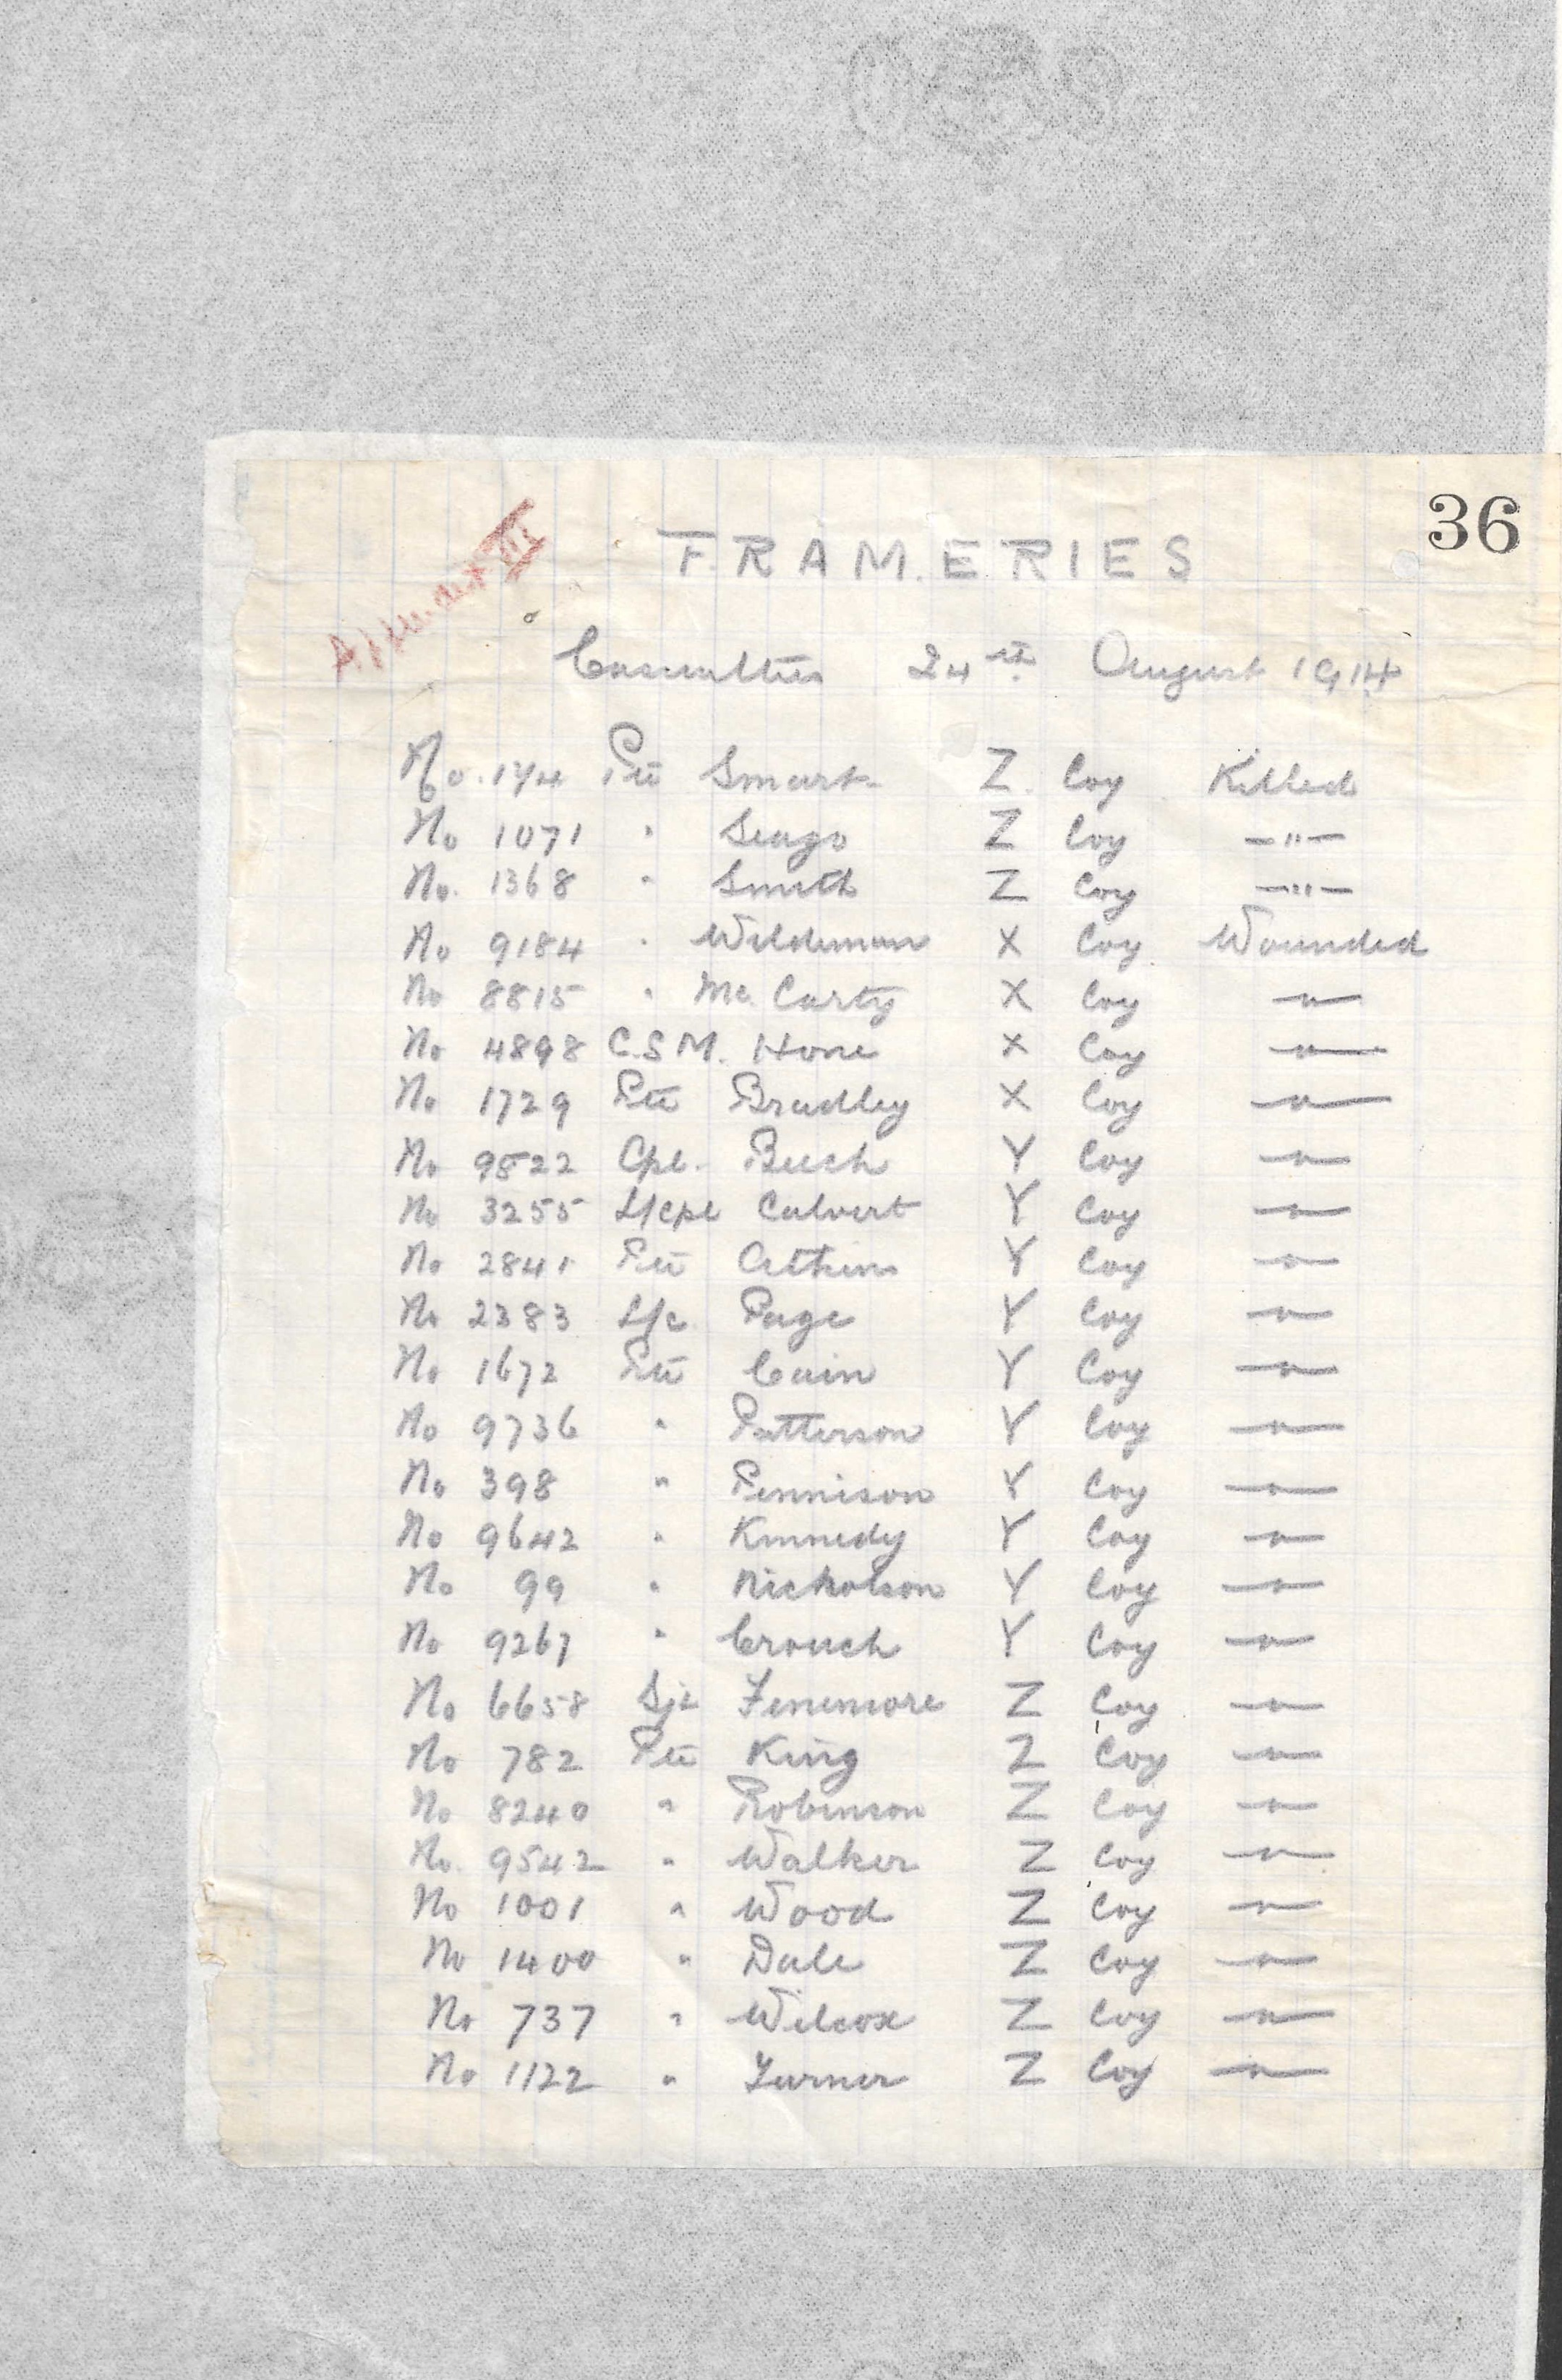 36
Appendix III
FRAMERIES
Casualties 24th August 1914
No. 174 Pte Smart Z Coy Killed
No 1071 " Seago Z Coy —"—
No. 1368 " Smith Z Coy —"—
No 9184 " Wildeman X Coy Wounded
No 8815 " Mc. Carty X Coy —"—
No 4898 C.S.M. Hone X Coy —"—
No 1729 Pte Bradley X Coy —"—
No 9522 Cpl. Beech Y Coy —"—
No 3255 L/Cpl Calvert Y Coy —"—
No 2841 Pte Atkins Y Coy —"—
No 2383 L/c Page Y Coy —"—
No 1672 Pte Cain Y Coy —"—
No 9736 " Patterson Y Coy —"—
No 398 " Pennison Y Coy —"—
No 9642 " Kennedy Y Coy —"—
No 99 " Nicholson Y Coy —"—
No 9267 " Crouch Y Coy —"—
No 6658 Sjt Fenemore Z Coy —"—
No 782 Pte King Z Coy —"—
No 8240 " Robinson Z Coy —"—
No. 9542 " Walker Z Coy —"—
No 1001 " Wood Z Coy —"—
No 1400 " Dale Z Coy —"—
No 737 " Wilcox Z Coy —"—
No 1122 " Turner Z Coy —"—